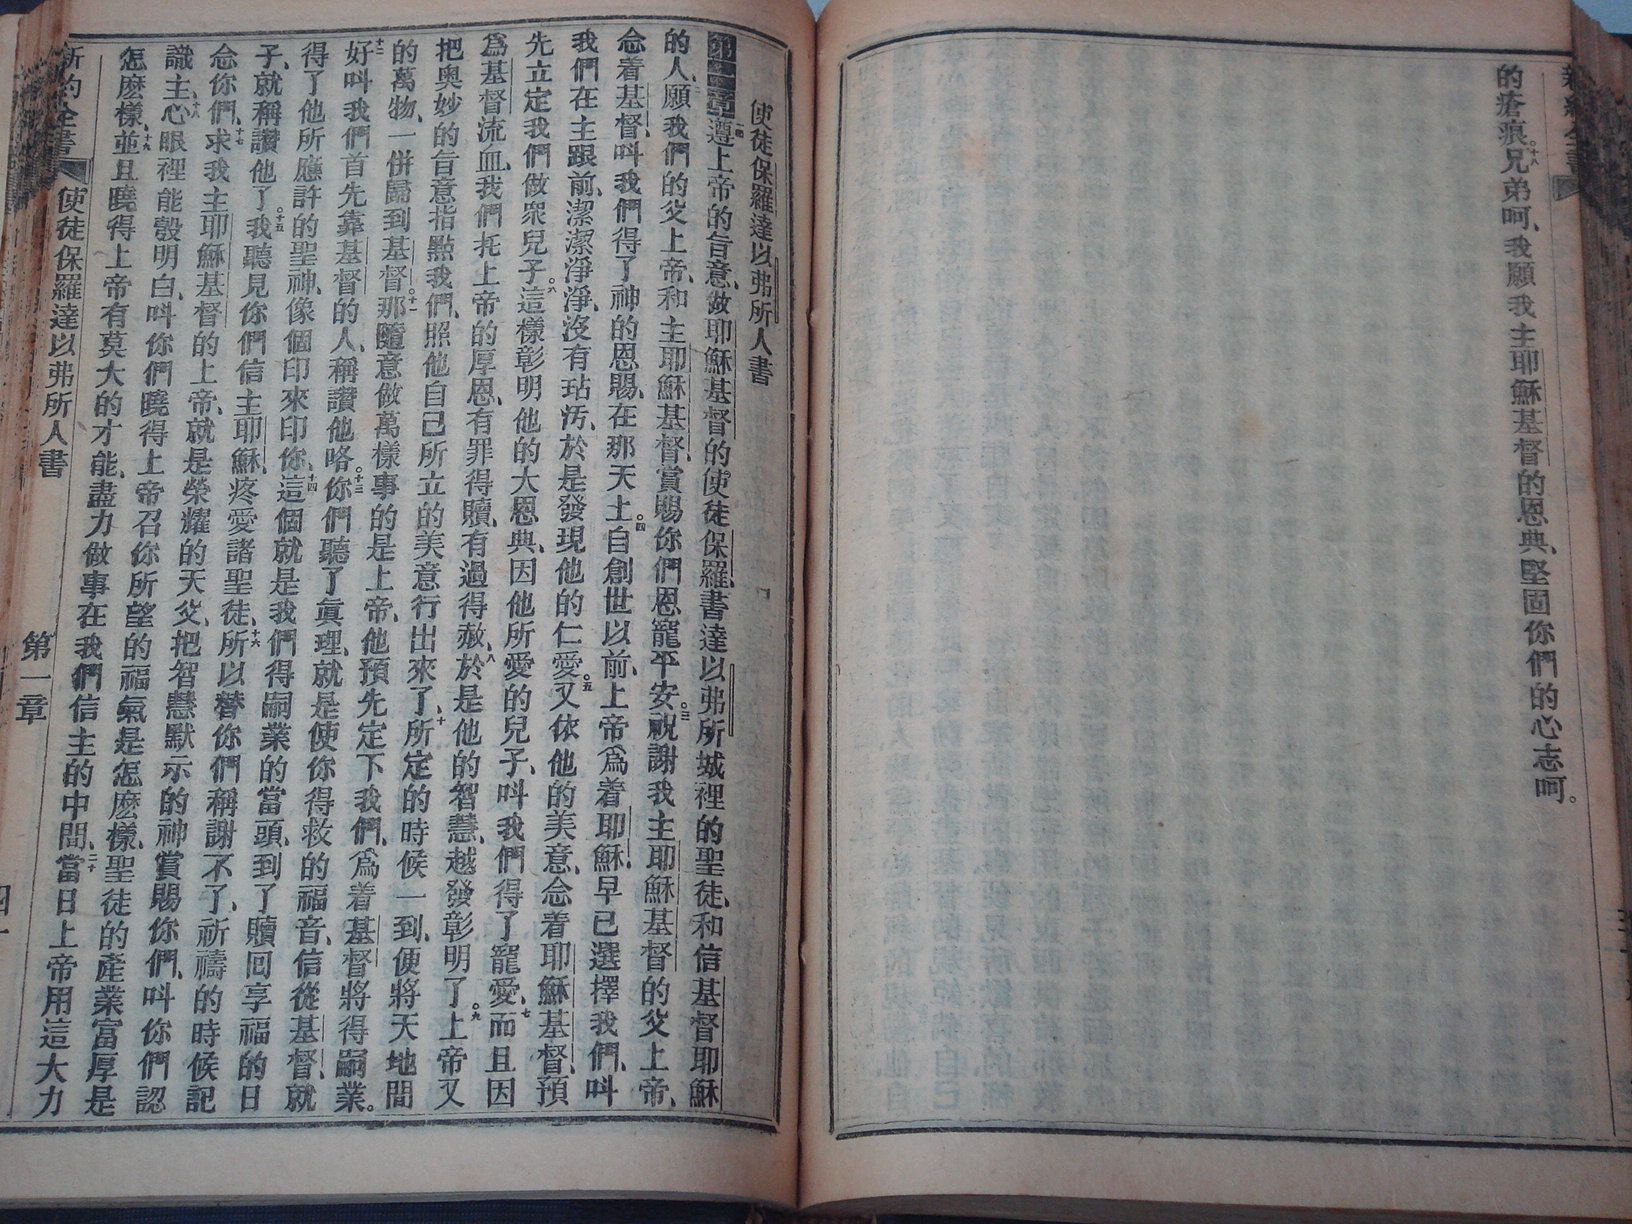 的瘡痕。十八兄弟呵、我願我主耶穌基督的恩典、堅固你們的心志呵。
使徒保羅達以弗所人書
第一章一遵上帝的旨意、做耶穌基督的使徒保羅、書達以弗所城裡的聖徒、和信基督耶穌
的人、二願我們的父上帝、和主耶穌基督、賞賜你們恩寵平安。三祝謝我主耶穌基督的父上帝、
念着基督、呌我們得了神的恩賜、在那天上。四自創世以前、上帝爲着耶穌、早已選擇我們、呌
我們在主跟前、潔潔淨淨、沒有玷汚、於是發現他的仁愛。五又依他的美意、念着耶穌基督、預
先立定我們做衆兒子。六這樣彰明他的大恩典、因他所愛的兒子、呌我們得了寵愛、七而且因
爲基督流血、我們托上帝的厚恩、有罪得贖、有過得赦、八於是他的智慧、越發彰明了。九上帝又
把奧妙的旨意指點我們、照他自己所立的美意行出來了、十所定的時候一到、便將天地間
的萬物、一併歸到基督。十一那隨意做萬樣事的是上帝、他預先定下我們、爲着基督將得嗣業。
十二好呌我們首先靠基督的人、稱讚他咯。十三你們聽了眞理、就是使你得救的福音、信從基督、就
得了他所應許的聖神、像個印來印你、十四這個就是我們得嗣業的當頭、到了贖回享福的日
子、就稱讚他了。十五我聽見你們信主耶穌、疼愛諸聖徒、十六所以替你們稱謝不了、祈禱的時候記
念你們、十七求我主耶穌基督的上帝、就是榮耀的天父、把智慧默示的神賞賜你們、呌你們認
識主、十八心眼裡能彀明白、呌你們曉得上帝召你所望的福氣是怎麼樣、聖徒的產業富厚是
怎麼樣、十九並且曉得上帝有莫大的才能、盡力做事在我們信主的中間、二十當日上帝用這大力
新約全書 使徒保羅達以弗所人書 第一章